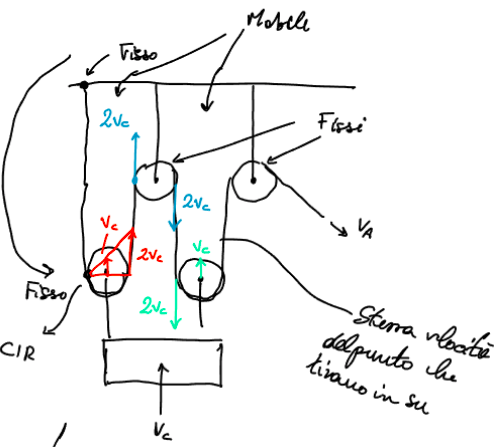 Mobile
Fisso
2vc
Fissi
2vc
vc
vc
2vc
vA
Fisso
2vc
CIR
Stessa velocità
del punto che
tirano in su
vc